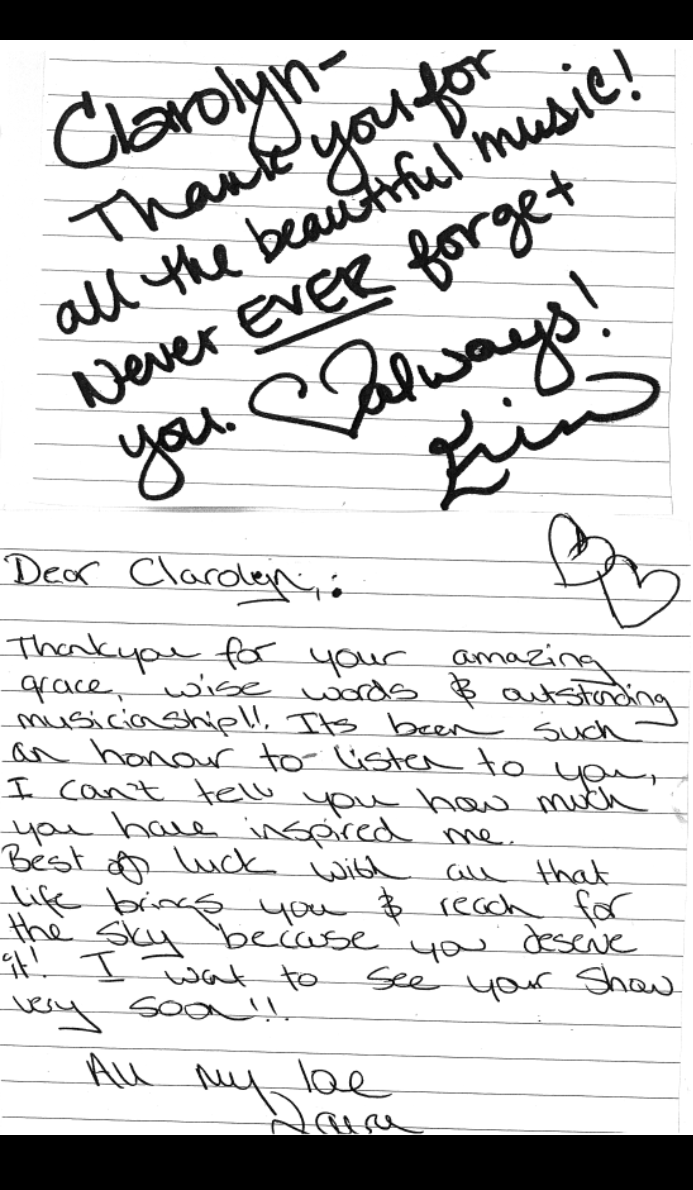 Clarolyn-
Thank you for
all the beautiful music!
Never EVER forget
you. always!
Dear Clarolyn,:
Thankyou for your amazing
grace, wise words & outstanding
musicianship!! Its been such
an honour to listen to you,
I can't tell you how much
you have inspired me.
Best of luck with all that
life brings you & reach for
the sky because you deserve
it! I wat to see your show
very soon!!
All my love